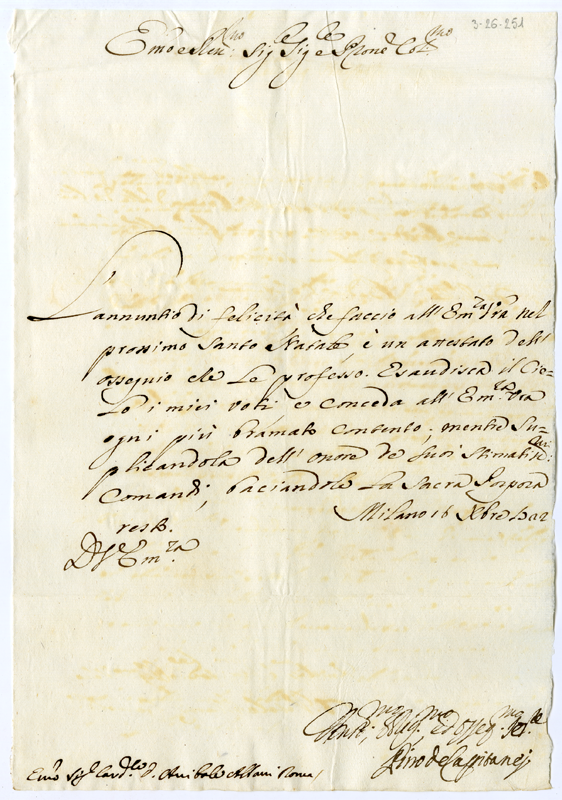 3-26-251
Emo e Ren: mo Sig.le Sig.le e Prone Col.mo
L'annuntio di felicità che faccio all'Em.za V'ra nel
prossimo Santo Natale è un attestato dell'
ossequio che Le professo. Esaudisca il Cie=
Lo i miei voti e conceda all'Em.za V'ra
ogni più bramato contento; mentre Su=
plicandola dell'onore de suoi stimatis.mi
Comandi, baciandole La Sacra Porpora
resto.
Milano 16 Xbre
D. V. Em.za
Um.mo Obblig.mo ed Osseq.mo Ser.re
Pirro de Capitanej
Emo Sig.r Card.le D. Anibale Albani Roma